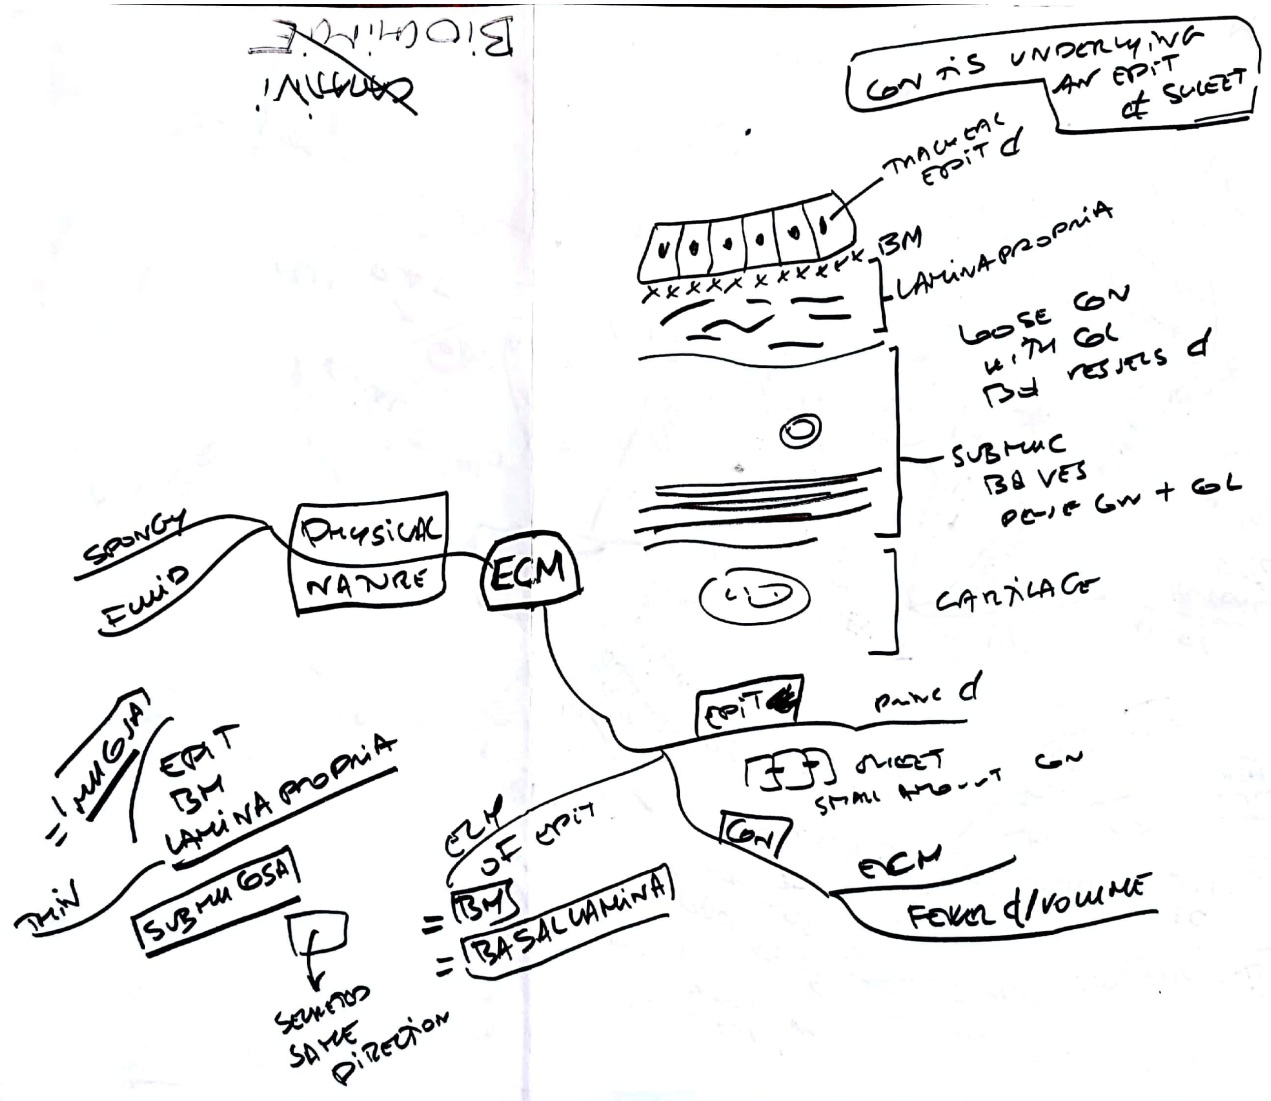 BiOCHiMiE
CON TiS UNDERLYiNG
AN EPiT
SHEET
TRACHEAL
EPiT
BM
LAMiNA PROPRiA
LOOSE CON
WiTH COL
VESSELS
SUBMUC
VES
DENSE CON + COL
CARTiLAGE
SPONGY
FLUiD
PHYSiCAL
NATURE
ECM
EPiT
SHEET
SMALL AMOUNT CON
CON
ECM
FEWER d/VOLUME
ECM
OF EPiT
= BM
= BASAL LAMiNA
= MUCOSA
EPiT
BM
LAMiNA PROPRiA
THiN
SUBMUCOSA
SECRETED
SAME
DiRECTiON